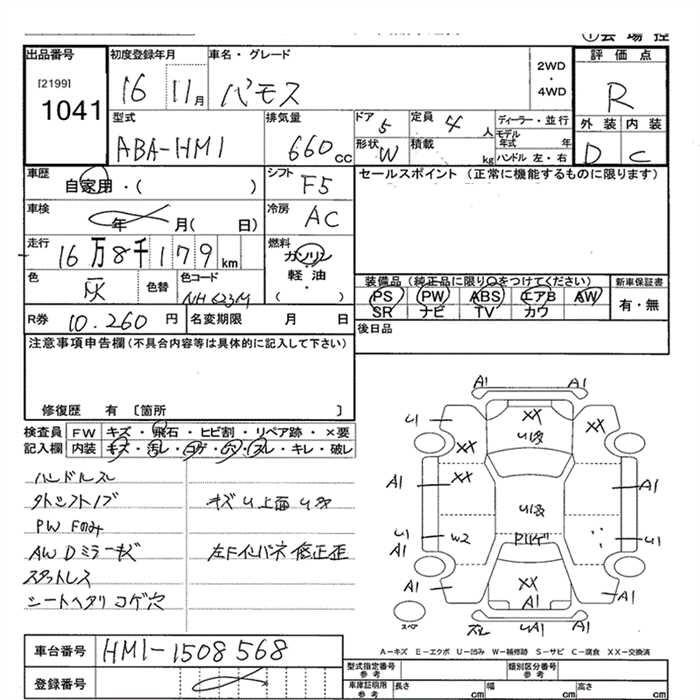 ①会場控
出品番号
[2199]
1041
初度登録年月
16 11月
車名・グレード
バモス
2WD
・
4WD
評価点
R
外装 内装
D C
型式
ABA-HM1
排気量
660cc
ドア 5
定員 4人
形状 W
積載 kg
ディーラー・並行
モデル年式 年
ハンドル 左・右
車歴
自家用・( )
シフト F5
セールスポイント (正常に機能するものに限ります)
車検
年 月( 日)
冷房 AC
走行
16万8千179km
燃料
ガソリン
軽油
( )
色
灰
色替
色コード
NH623M
装備品(純正品に限り○をつけてください)
PS PW ABS エアB AW
SR ナビ TV カワ
新車保証書
有・無
R券 10.260円
名変期限 月 日
後日品
注意事項申告欄(不具合内容等は具体的に記入して下さい)
修復歴 有 〔箇所 〕
検査員記入欄
FW キズ・飛石・ヒビ割・リペア跡・×要
内装 キズ・汚レ・コゲ・穴・スレ・キレ・破レ
ハンドルスレ
PW Fのみ
AW Dミラーキズ
スタットレス
シートヘタリ コゲ穴
左Fインパネ 修正歪
A1 A1
U1 XX XX
XX
A1 XX A1
U1 W2 U1
A1 A1
XX
A1 A1 A1
スペア スレ
A-キズ E-エクボ U-凹み W-補修跡 S-サビ C-腐食 XX-交換済
車台番号 HM1-1508568
登録番号
型式指定番号 参考
類別区分番号 参考
車庫証明用 参考
長さ cm 幅 cm 高さ cm